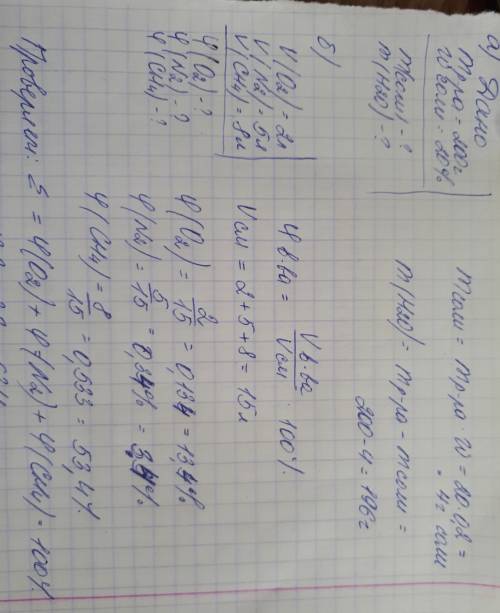 а) Дано
m р-ра = 200г
w соли = 20%
m соли - ?
m(H2O) - ?
m соли = m р-ра · w = 20·0,2 =
= 4г соли
m(H2O) = m р-ра - m соли =
200-4=196г
б)
V(O2) = 2л
V(N2) = 5л
V(CH4) = 8л
φ(O2) - ?
φ(N2) - ?
φ(CH4) - ?
φ в-ва = V в-ва / V см · 100%
V см = 2+5+8 = 15л
φ(O2) = 2/15 = 0,134 = 13,4%
φ(N2) = 5/15 = 0,34% = 34%
φ(CH4) = 8/15 = 0,533 = 53,4%
Проверяем: Σ = φ(O2) + φ(N2) + φ(CH4) = 100%